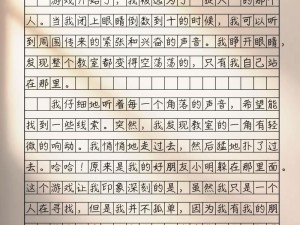 游戏开始了，我被选为了“捉人”的那个
人。当我闭上眼睛倒数到十的时候，我可以听
到周围传来的紧张和兴奋的声音。我睁开眼睛，
发现整个教室都变得空荡荡的，只有我自己站
在那里。
我仔细地听着每一个角落的声音，希望能
找到一些线索。突然，我发现教室的一角有轻
微的响动。我悄悄地走过去，然后猛地扑了过
去。哈哈！原来是我的好朋友小明躲在那里面。
这个游戏让我印象深刻的是，虽然我只是一个
人在寻找，但是我并不孤单，因为我有我的朋